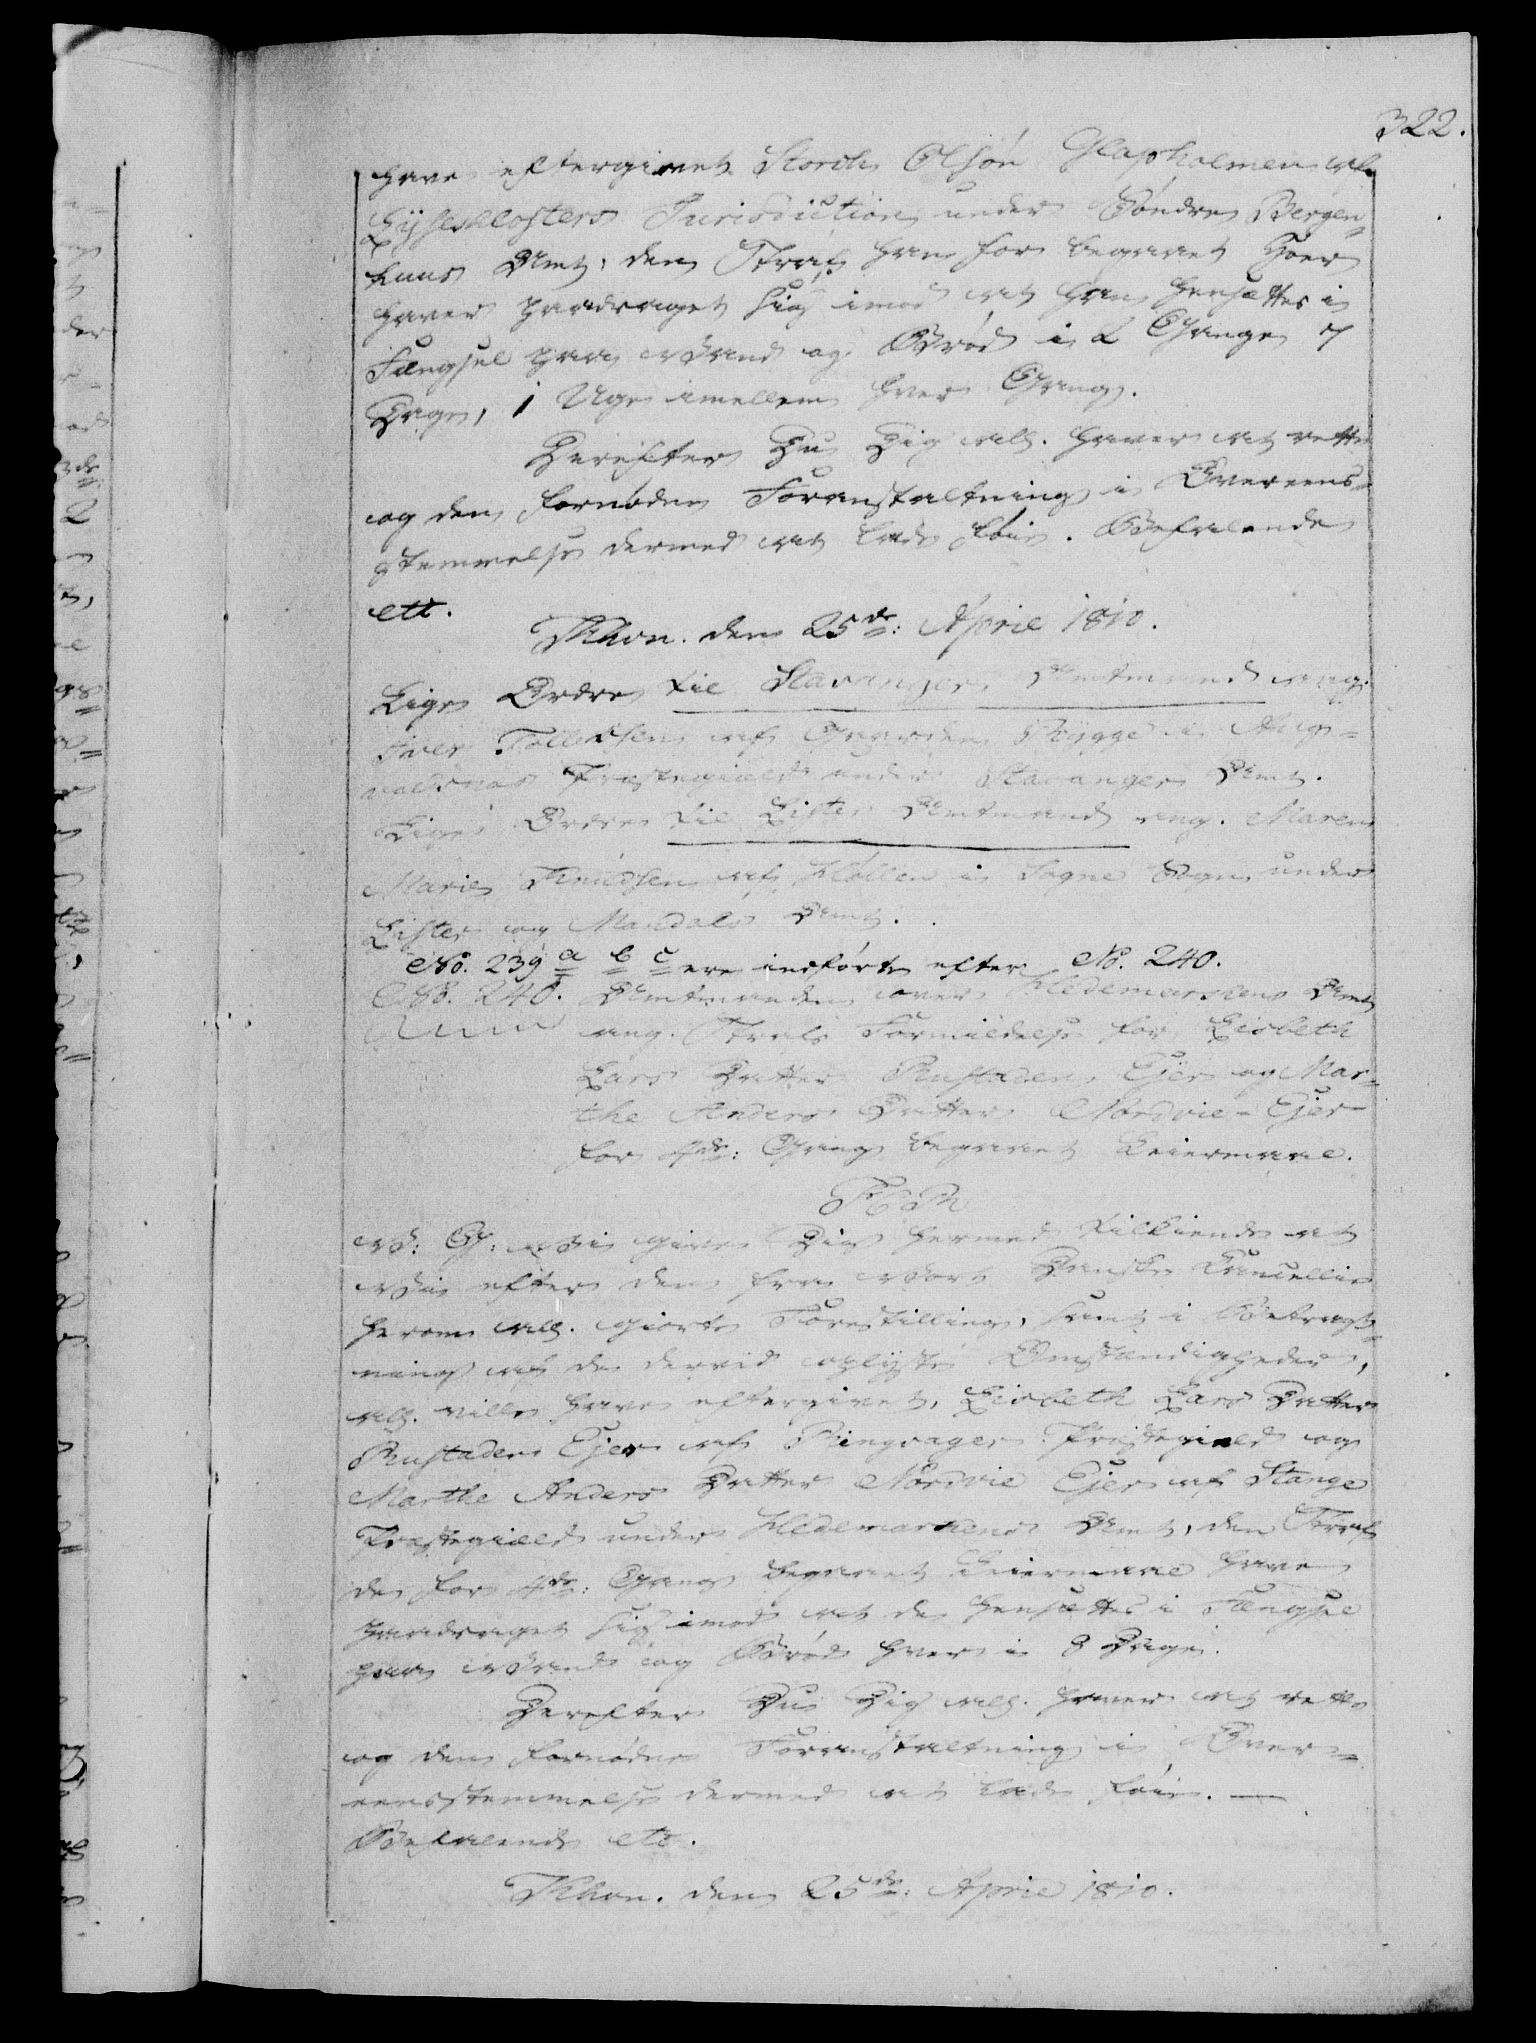 322.
have eftergivet Storck Olsøn Glapholmen af
Lyseklosters Jurisdiction under Søndre Bergen-
huus Amt, den Straf han for begaaet Hoer
haver paadraget sig imod at han hensættes i
Fængsel paa Vand og Brød i 2 Gange 7
Dage, 1 Uge imellem hver Gang.
Derefter Du Dig all. haver at rette
og den fornødne Foranstaltning i Overeens-
stemmelse dermed at lade føie. Befalende
ett.
Khavn. den 25de: April 1810.
Lige Ordre til Stavanger Amtmand ang.
Iver Tollevsen af Gaarden Bygge i Aug-
valdsnæs Præstegield under Stavanger Amt.
Lige Ordre til Lister Amtmand ang. Maren
Marie Knudsen af Høllen i Sogne Sogn under
Lister og Mandals Amt.
No. 239 a b c ere indførte efter No. 240.
No. 240. Amtmanden over Hedemarkens Amt
ang. Strafs Formildelse for Lisbeth
Lars Datter Rustaden Ejer og Mar-
the Anders Datter Nordvie-Ejer
for 4de: Gang begaaet Leiermaal.
F 6 R
V: G: Vi give Dig hermed tilkiende at
Vi efter den fra Vort Danske Cancellie
herom all. giorte Forestilling, samt i Betragt-
ning af de derved oplyste Omstændigheder,
all. ville have eftergivet, Lisbeth Lars Datter
Rustaden Ejer af Ringsager Præstegield og
Marthe Anders Datter Nordvie Ejer af Stange
Præstegield under Hedemarkens Amt, den Straf
de for 4de: Gang begaaet Leiermaal have
paadraget sig imod at de hensættes i Fængsel
paa Vand og Brød hver i 8 Dage.
Derefter Du Dig all. haver at rette
og den fornødne Foranstaltning i Over-
eensstemmelse dermed at lade føie. —
Befalende etc.
Khavn. den 25de: April 1810.